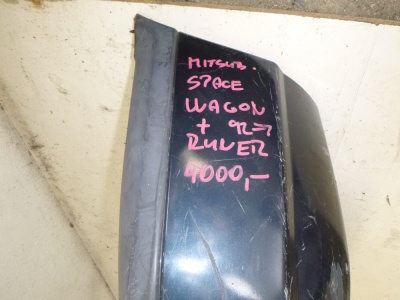 MITSUB.
SPACE
WAGON
+ 92→
RUNER
4000,-